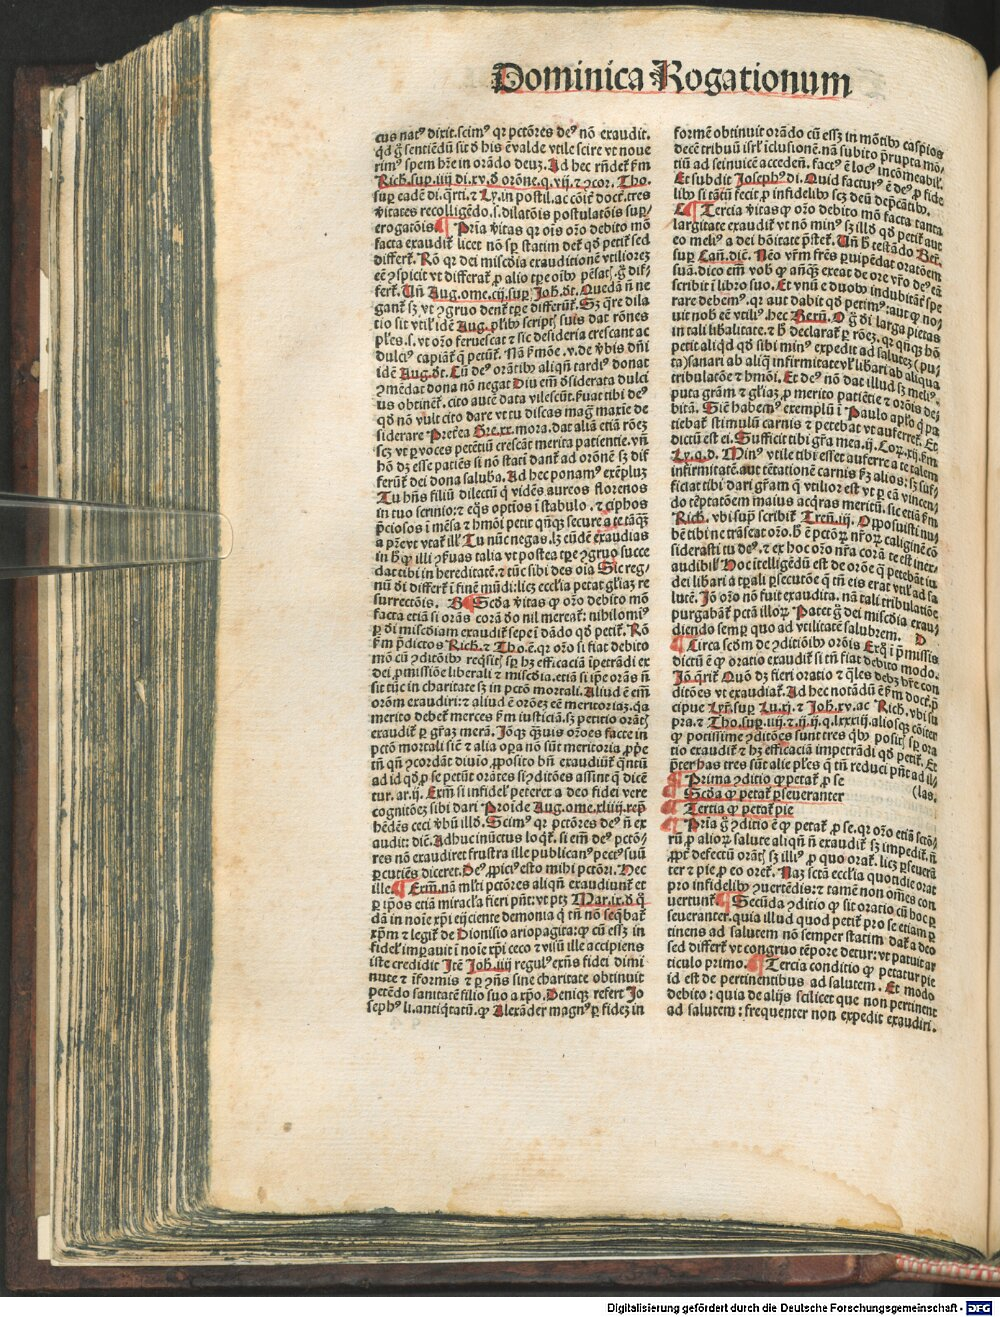 Dominica Rogationum
cus natꝰ dixit. scimꝰ qr pctōres deꝰ nō exaudit.
qd ḡ sentiēdū sit d his ē valde vtile scire vt noue
rimꝰ spem hr̄e in orādo deuz. Ad hec rn̄det ẜm
Rich. sup. iiij di. xv. d orōne. q. vij. ⁊ ꝯcor. Tho.
sup eadē di. q̄rti. ⁊ Ly. in postil. ac cōit doct. tres
v̄itates recolligēdo. s. dilatōis postulatōis sup/
erogatōis ¶ Pria v̄itas qr oīs orō debito mō
facta exaudit licet nō sp statim det qd petit sed
differt. Rō qr dei miscdia exauditionē vtiliorez
differt. Vn̄ Aug. ome. cij. sup Joh. dt. Quedā n̄ ne
gant sz vt ꝯgruo dent tpe differūt. Sz q̄re dila
tio sit vtilꝭ idē Aug. plib scriptꝭ suis dat rōnes
ples. s. vt orō feruescat ⁊ sic desideria crescant ac
dulciꝰ capiat q̄ petūt. Nā ẜmōe. v. de v̄bis dn̄i
idē Aug. dt. Cū deꝰ orātib aliqn̄ tardiꝰ donat
ꝯmēdat dona nō negat Diu em̄ dsiderata dulci
us obtinēt. cito autē data vilescūt. ẜuat tibi deꝰ
qd nō vult cito dare vt tu discas maḡ maxie de
siderare Preterea Gre. xx. mora. dat aliā etiā rōez
scz vt p voces petētiū crescāt merita patientie. vn̄
hō dz esse patiēs si nō stati dant ad orōnē sz dif
ferūt dei dona saluba. Ad hec ponamꝰ exēpluz
Tu hn̄s filiū dilectū q̄ vidēs aureos florenos
in tuo scrinio: ⁊ eqs optios ī stabulo. ⁊ ciphos
p̄ciosos ī mēsa ⁊ hmōi petit qn̄qz secure a te tāqz
a pr̄e vt vtat illꝭ Tu nūc negas. lz eūdē exaudias
in h q illi ꝯẜuas talia vt postea tpe ꝯgruo succe
dat tibi in hereditatē. ⁊ tūc sibi des oīa Sic reg
nū di differt ī finē mūdi: licz ecclīa petat glīaz re
surrectōis. B ¶ Scda v̄itas q orō debito mō
facta etiā si orās corā do nil mereat: nihilomiꝰ
p di miscdiam exaudit sepe ī dādo qd petit. Rō
ẜm p̄dictos Rich. ⁊ Tho. ē. qr orō si fiat debito
mō cū ꝯditōib reqsitꝭ sp hz efficaciā īpetrādi ex
dei p̄missiōe liberali ⁊ miscdia. etiā si ipe orās n̄
sit tūc in charitate sz in pctō mortali. Aliud ē em̄
orōm exaudiri: ⁊ aliud ē orōez eē meritoriaz. qa
merito debet merces ẜm iusticiā. sz petitio orātꝭ
exaudit p gr̄az merā. Jōqz q̄uis orōes facte in
pctō mortali sicē ⁊ alia opa nō sūt meritoria, ppe
tn̄ qn̄ ꝯcordāt diuīo pposito bn̄ exaudiūt q̄ntū
ad id qd p se petūt orātes si ꝯditōes assint q̄ dicē
tur. ar. ij. Exm̄ si infidelꝭ peteret a deo fidei vere
cognitōez sibi dari Proide Aug. ome. xliiij. rep̄
hēdēs ceci v̄bū illd. Scimꝰ qr pctōres deꝰ n̄ ex
audit: dic. Adhuc inūctus loqt. si em̄ deꝰ pctō/
res nō exaudiret frustra ille publicanꝰ pectꝰ suū
pcutiēs diceret. Deꝰ ppiciꝰ esto mihi pctōri. Hec
ille ¶ Exm̄. nā mlti pctōres aliqn̄ exaudiunt et
p ipos etiā miracla fieri pn̄t: vt ptꝫ Mar. ix. d q
dā in noīe xpi eijciente demonia q tn̄ nō seqbat
xpm ⁊ legit de Dionisio ariopagita: q cū essꝫ in
fidelꝭ impauit ī noīe xpi ceco ⁊ visū ille accipiens
iste credidit Jtē Joh. iiij regulꝰ exn̄s fidei dimi
nute ⁊ iformis ⁊ p ꝯn̄s sine charitate obtinuit
petēdo sanitatē filio suo a xpo. Deniqz refert Jo
sephꝰ li. antiqtatū. q Alexāder magnꝰ p fidez in
formē obtinuit orādo cū essꝫ in mōtib caspios
decē tribuū isrl īclusionē. nā subito p̄rupta mō/
tiū ad seinuicē acceden. factꝰ ē locꝰ incōmeabilꝭ.
Et subdit Josephꝰ di. Quid facturꝰ ē deꝰ p fide
lib si tātū fecit p infidelib scz deū dep̄cātib.
C ¶ Tercia v̄itas q orō debito mō facta tanta
largitate exaudit vt nō minꝰ sz illd qd petit aut
eo meliꝰ a dei bōitate p̄stet. Vn̄ h testādo Ber.
sup Can. dic. Nēo vr̄m frēs puipēdat oratōem
suā. dico em̄ vob q añqz exeat de ore vr̄o deꝰ eā
scribit ī libro suo. Et vnū e duob indubitāt spe
rare debemꝰ. qr aut dabit qd petimꝰ: aut q no/
uit nob eē vtiliꝰ. hec Bern. O ḡ di larga pietas
in tali libalitate. ⁊ h declarat p rōez. qr qn̄qz hō
petit aliqd qd sibi minꝰ expedit ad salutez (pu/
ta) sanari ab aliq infirmitate vl libari ab aliqua
tribulatōe ⁊ hmōi. Et deꝰ nō dat illud sz meliꝰ.
puta grām ⁊ glīaz p merito patiētie ⁊ orōis de/
bitā. Sic habemꝰ exemplū ī Paulo aplo q pa
tiebat stimulū carnis ⁊ petebat vt auferret. Et
dictū est ei. Sufficit tibi gr̄a mea. ij. Cor. xij. ẜm
Ly. q. d. Minꝰ vtile tibi esset auferre a te talem
infirmitatē. aut tētationē carnis ẜz alios: sz suf/
ficiat tibi dari gr̄am q vtilior est vt p eā vincen/
do tēptatōem maius acqras meritū. sic etiā ẜm
Rich. vbi sup scribit Tren. iij. Opposuisti nu
bē tibi ne trāseat orō. h ē pctōꝝ nr̄oꝝ caliginē cō
siderasti tu deꝰ. ⁊ ex hoc orō nr̄a corā te est inex/
audibilꝭ Hoc itelligēdū est de orōe q petebāt iu
dei libari a tpali psecutōe q tn̄ eis erat vtilꝭ ad sa
lutē. Jō orō nō fuit exaudita. nā tali tribulatiōe
purgabāt pctā illoꝝ Patet ḡ dei miscdia exau/
diendo semp quo ad vtilitatē salubrem. D
¶ Circa scdm de ꝯditiōib orōis Exq ī p̄missis
dictū ē q oratio exaudit si tn̄ fiat debito modo.
Jō qrit Quō dz fieri oratio ⁊ q̄les debz hr̄e con
ditōes vt exaudiat. Ad hec notādū ē ẜm doct. p̄
cipue Lyr. sup Lu. xj. ⁊ Joh. xv. ac Rich. vbi su
pra. ⁊ Tho. sup. iiij. ⁊. ij. ij. q. lxxxiij. aliosqz cōiter
q potissime ꝯditōes sunt tres qb positꝭ sp ora
tio exaudit ⁊ hz efficaciā impetrādi qd petit. Et
p̄ter has tres sūt alie ples q̄ tn̄ reduci pn̄t ad il/
¶ Prima ꝯditio q petat p se (las.
¶ Scda q petat pseueranter
¶ Tertia q petat pie
¶ Pria ḡ ꝯditio ē q petat p se. qr orō etiā sctō/
rū p alioꝝ salute aliqn̄ n̄ exaudit sz impedit. n̄
ppt defectū orātꝭ sz illiꝰ p quo orat. licz pseuerā
ter ⁊ pie p eo oret. Naz sctā ecclīa quotidie orat
pro infidelib ꝯuertēdis: ⁊ tamē non oīes con
uertunt ¶ Secūda ꝯditio q sit oratio cū hoc p
seueranter. quia illud quod petit pro se etiam p
tinens ad salutem nō semper statim dat a deo
sed differt vt congruo tēpore detur: vt patuit ar
ticulo primo. ¶ Tercia conditio q petatur pie
id est de pertinentibus ad salutem. Et modo
debito: quia de alijs scilicet que non pertinent
ad salutem: frequenter non expedit exaudiri.
Digitalisierung gefördert durch die Deutsche Forschungsgemeinschaft - DFG